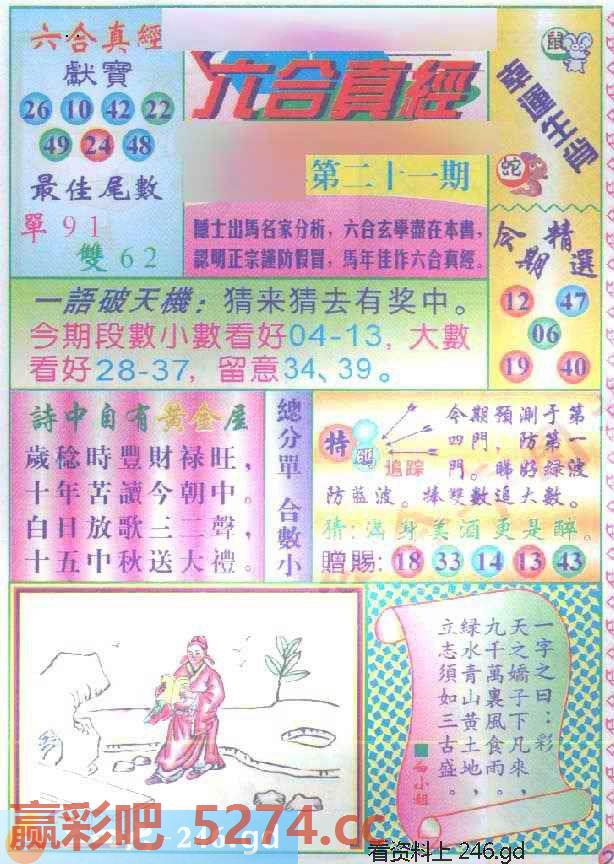 六合真經
獻寶
26 10 42 22
49 24 48
最佳尾數
單 9 1
雙 6 2
六合真經
第二十一期
隱士出馬名家分析，六合玄學盡在本書，
認明正宗謹防假冒，馬年佳作六合真經。
鼠
幸運生肖
蛇
今期精選
12 47
06
19 40
一語破天機：猜来猜去有奖中。
今期段數小數看好04-13，大數
看好28-37，留意34、39。
詩中自有黃金屋
歲稔時豐財禄旺，
十年苦讀今朝中。
白日放歌三二聲，
十五中秋送大禮。
總分單 合數小
特
追踪
今期預測于第
四門，防第一
門。睇好綠波
防藍波。捧雙數追大數。
猜：滿身美酒更是醉。
贈賜：18 33 14 13 43
一字之曰：彩
天之嬌子下凡來，
九千萬裏風食雨。
緑水青山黃土地，
立志須如三古盛。
赢彩吧 5274.cc
246.gd
看资料上 246.gd